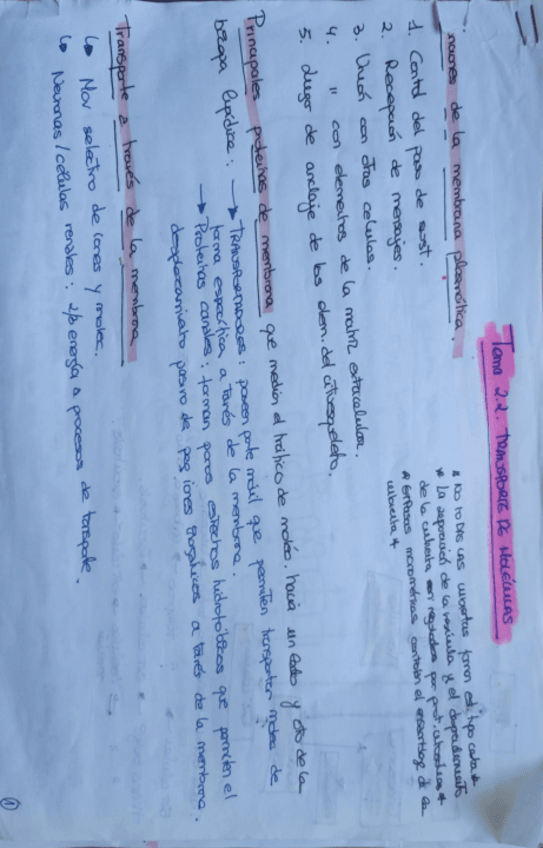 Tema 2.2. TRANSPORTE DE MOLÉCULAS
* NO TODAS las cubiertas forman est. tipo cesta *
* La separación de la vesícula y el desprendimiento
de la cubierta son regulados por prot. citosólicas *
* GTPasas monoméricas controlan el ensamblaje de la
cubierta *
nciones de la membrana plasmática.
1. Control del paso de sust.
2. Recepción de mensajes.
3. Unión con otras células.
4. " con elementos de la matriz extracelular.
5. Lugar de anclaje de los elem. del citoesqueleto.
Principales proteínas de membrana que median el tráfico de moléc. hacia un lado y otro de la
bicapa lipídica: → TRANSPORTADORES: poseen parte móvil que permiten transportar moléc de
forma específica a través de la membrana.
→ Proteínas canales: forman poros estrechos hidrofílicos que permiten el
desplazamiento pasivo de peq iones inorgánicos a través de la membrana.
Transporte a través de la membrana
↳ Mov selectivo de iones y moléc.
↳ Neuronas/células renales: 2/3 energía a procesos de transporte.
1